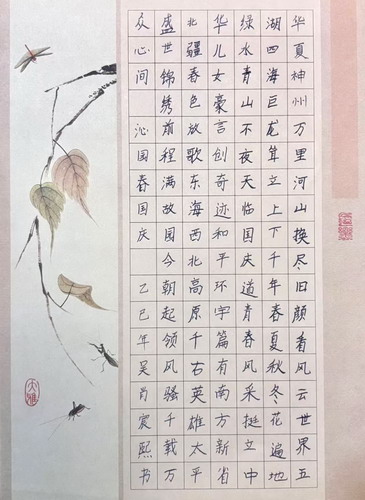 华夏神州万里河山换尽旧颜看风云世界五
湖四海巨龙耸立上下千年春夏秋冬花遍地
绿水青山不夜天临国庆道青春风采挺立中
华儿女豪言创奇迹和平环宇篇有南方新省
北疆春色放歌东海西北高原千古英雄太平
盛世锦绣前程满故国今朝起领风骚千载万
众心间 沁园春国庆 乙巳年吴肖震熙书
大雅